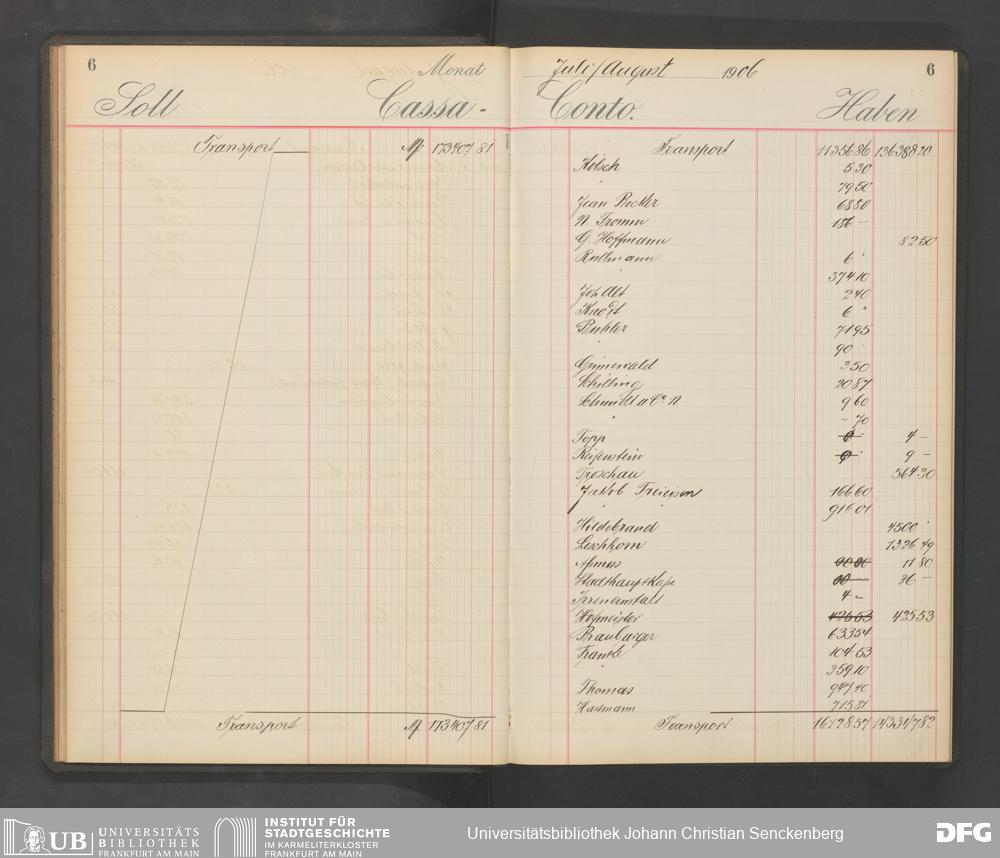 6
Monat
Soll
Cassa-
Transport M 173407 81
Transport M 173407 81
Juli/August 1906
6
Conto.
Haben
Transport 11356 86 136388 20
Kolsch 5 30
" 79 50
Jean 68 80
N. Fromm 186 –
G. Hoffmann 82 50
Rullmann 6 "
" 374 10
Joh Alt 2 40
Knodt 6 "
Buhler 71 95
" 90
Grünewald 3 50
Schilling 20 87
Schmidt a Co N 9 60
" – 70
Topp 4 –
Reifenstein 9 –
Troschau 564 30
Jakob Freieisen 166 60
" " 916 01
Hildebrand 4500 "
Leschhorn 1326 49
11 80
Stadthauptkasse 36 –
Irrenanstalt 4 –
Hofmeister 425 53 425 53
Braubarger 633 54
Franke 104 53
" 359 10
Thomas 947 40
Hartmann 715 81
Transport 16728 57 143347 82
UB
UNIVERSITÄTS
BIBLIOTHEK
FRANKFURT AM MAIN
INSTITUT FÜR
STADTGESCHICHTE
IM KARMELITERKLOSTER
FRANKFURT AM MAIN
Universitätsbibliothek Johann Christian Senckenberg
DFG